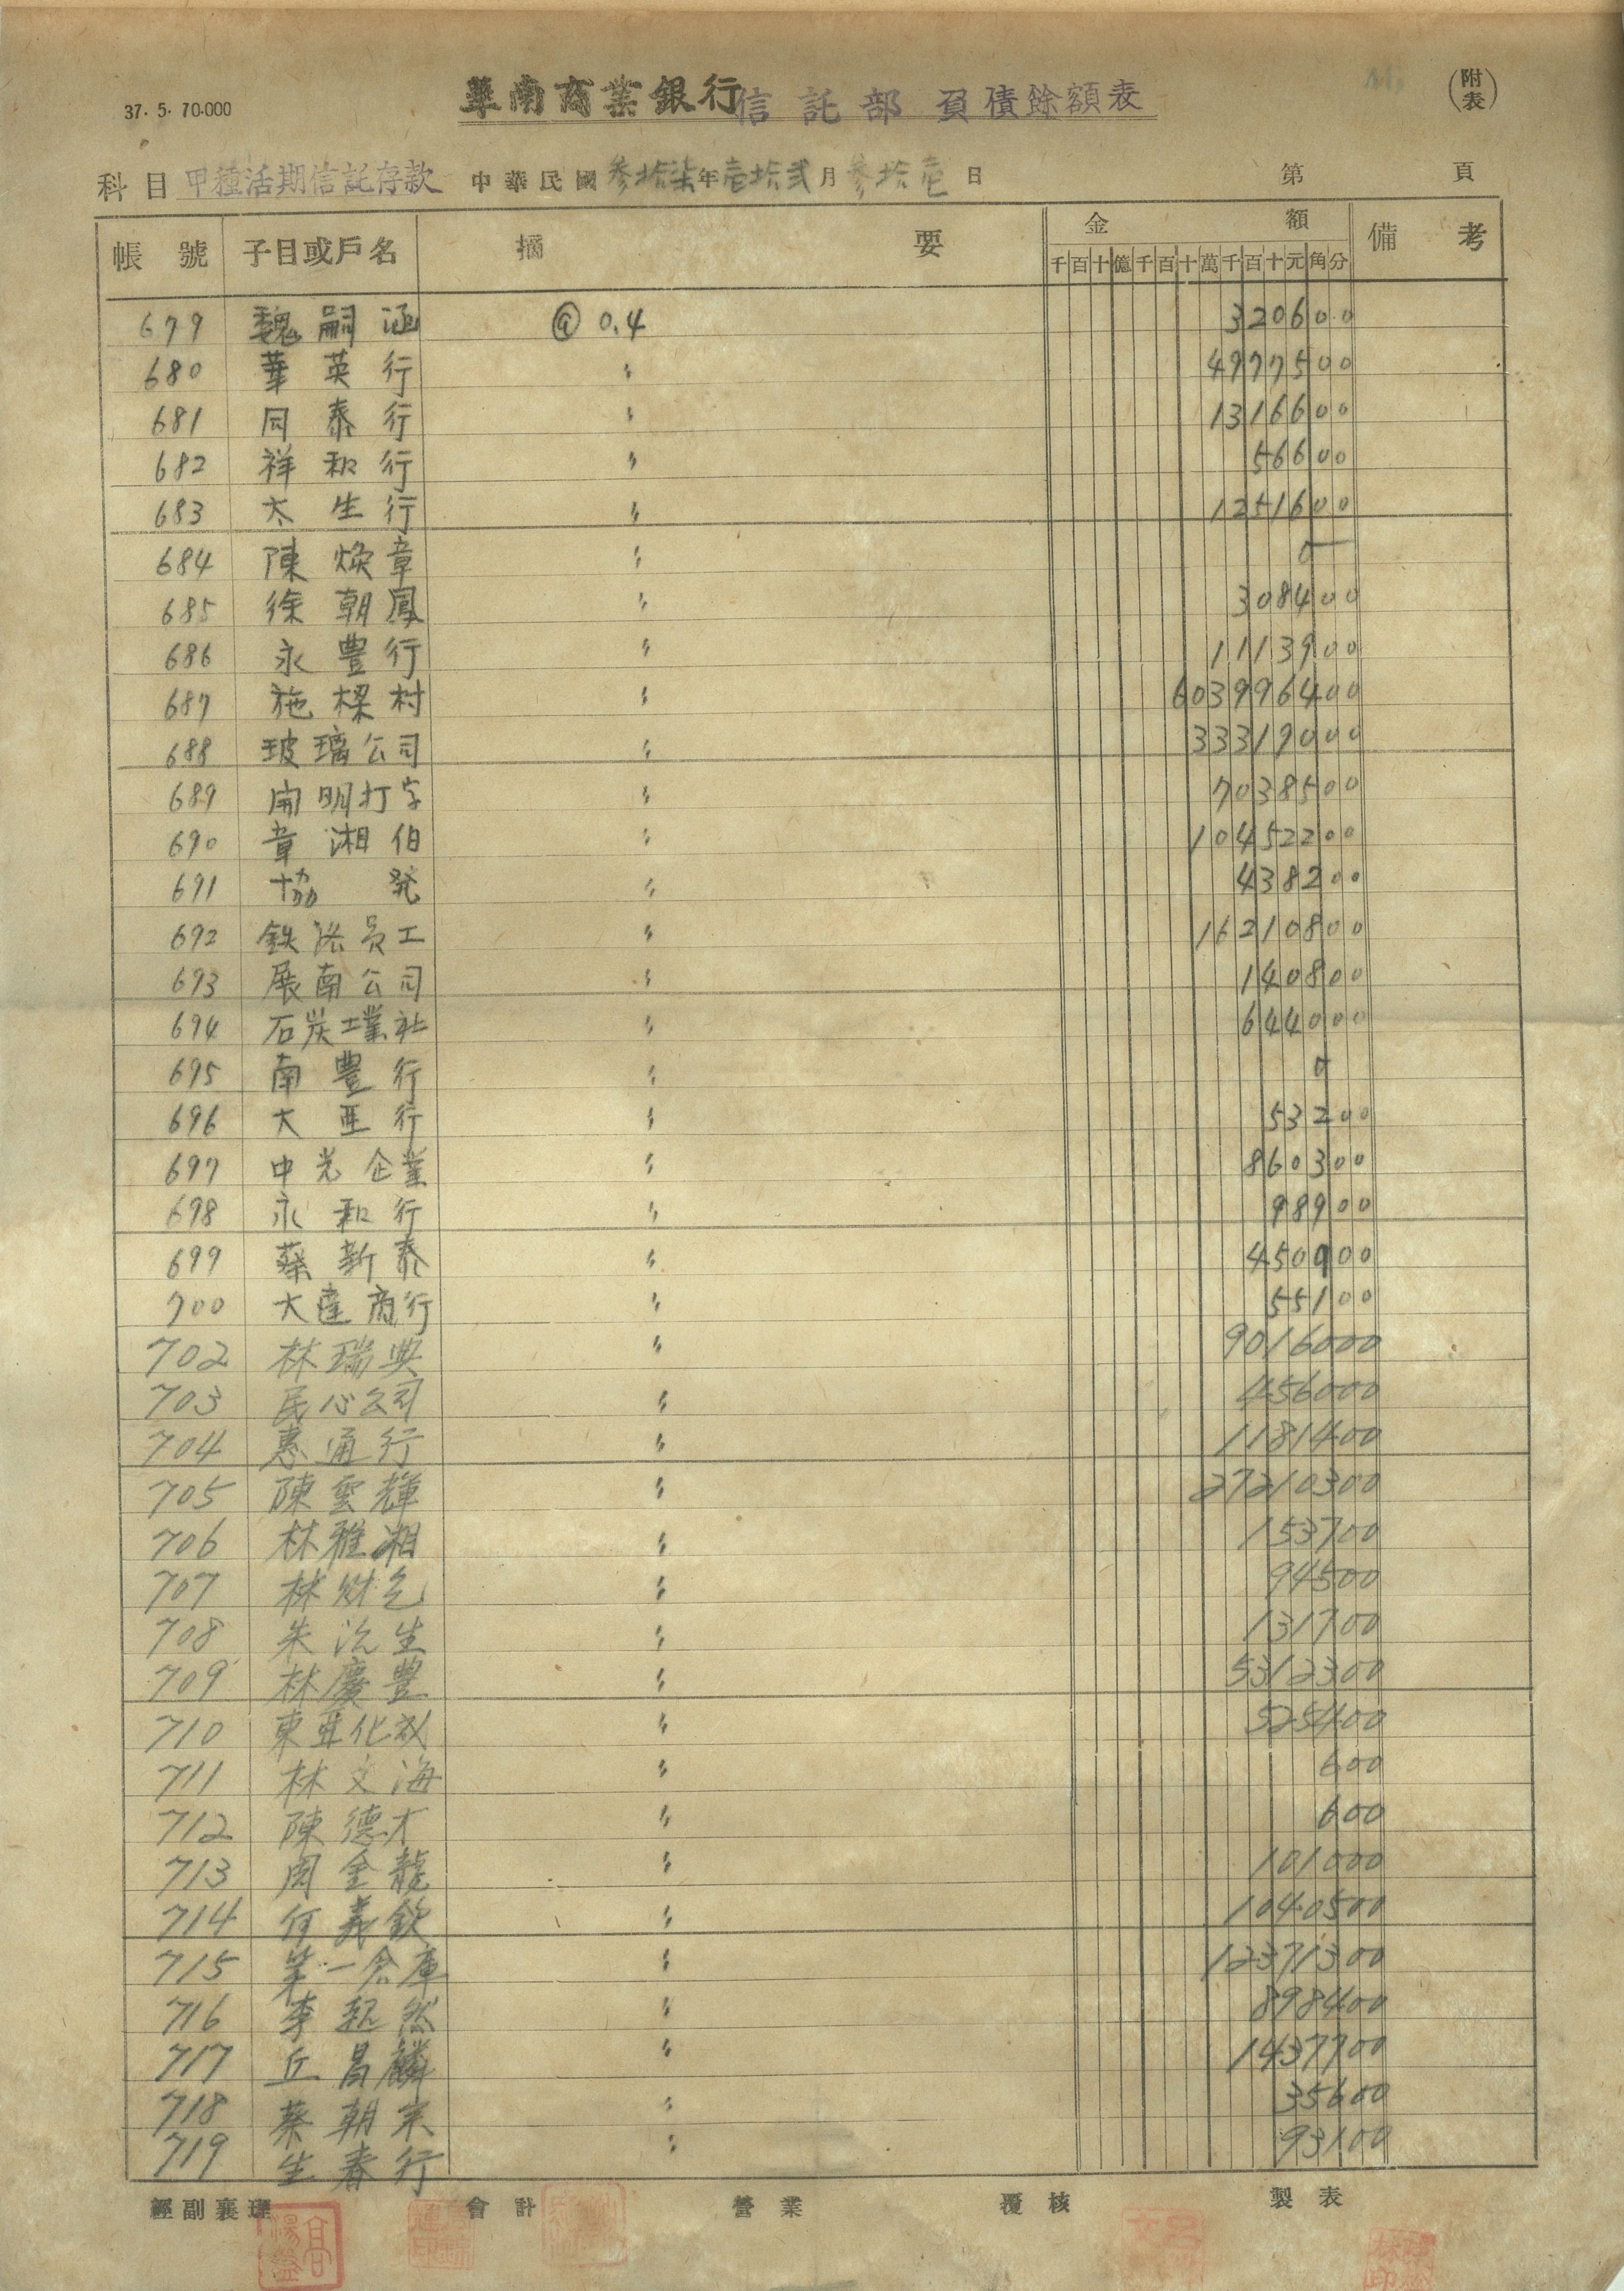 37. 5. 70.000
華南商業銀行信託部 負債餘額表
(附表)
科目 甲種活期信託存款 中華民國 參拾柒年壹拾貳月參拾壹日 第 頁
帳號 子目或戶名 摘要 金額 備考
千百十億千百十萬千百十元角分
679 魏嗣涵 @0.4 320600
680 華英行 〃 4977500
681 同泰行 〃 1316600
682 祥和行 〃 56600
683 太生行 〃 1251600
684 陳煥章 〃 0
685 徐朝鳳 〃 308400
686 永豐行 〃 1113900
687 施樑村 〃 603996400
688 玻璃公司 〃 33319000
689 開明打字 〃 7038500
690 章湘伯 〃 10452200
691 協発 〃 438200
692 鉄路員工 〃 16210800
693 展南公司 〃 140800
694 石炭工業社 〃 644000
695 南豐行 〃 0
696 大亜行 〃 53200
697 中光企業 〃 860300
698 永和行 〃 98900
699 蔡新泰 〃 450900
700 大達商行 〃 55100
702 林瑞典 〃 9016000
703 民心公司 〃 456000
704 惠通行 〃 1181400
705 陳雲輝 〃 27210300
706 林雅湘 〃 153700
707 林財乞 〃 94500
708 朱 生 〃 131700
709 林慶豐 〃 5312300
710 東亜化 〃 525400
711 林文海 〃 600
712 陳德才 〃 600
713 周金龍 〃 101000
714 何義欽 〃 1040500
715 第一倉庫 〃 12371300
716 李起然 〃 898400
717 丘昌麟 〃 1437700
718 蔡朝宗 〃 35600
719 生春行 〃 93100
經副襄理 會計 營業 覆核 製表